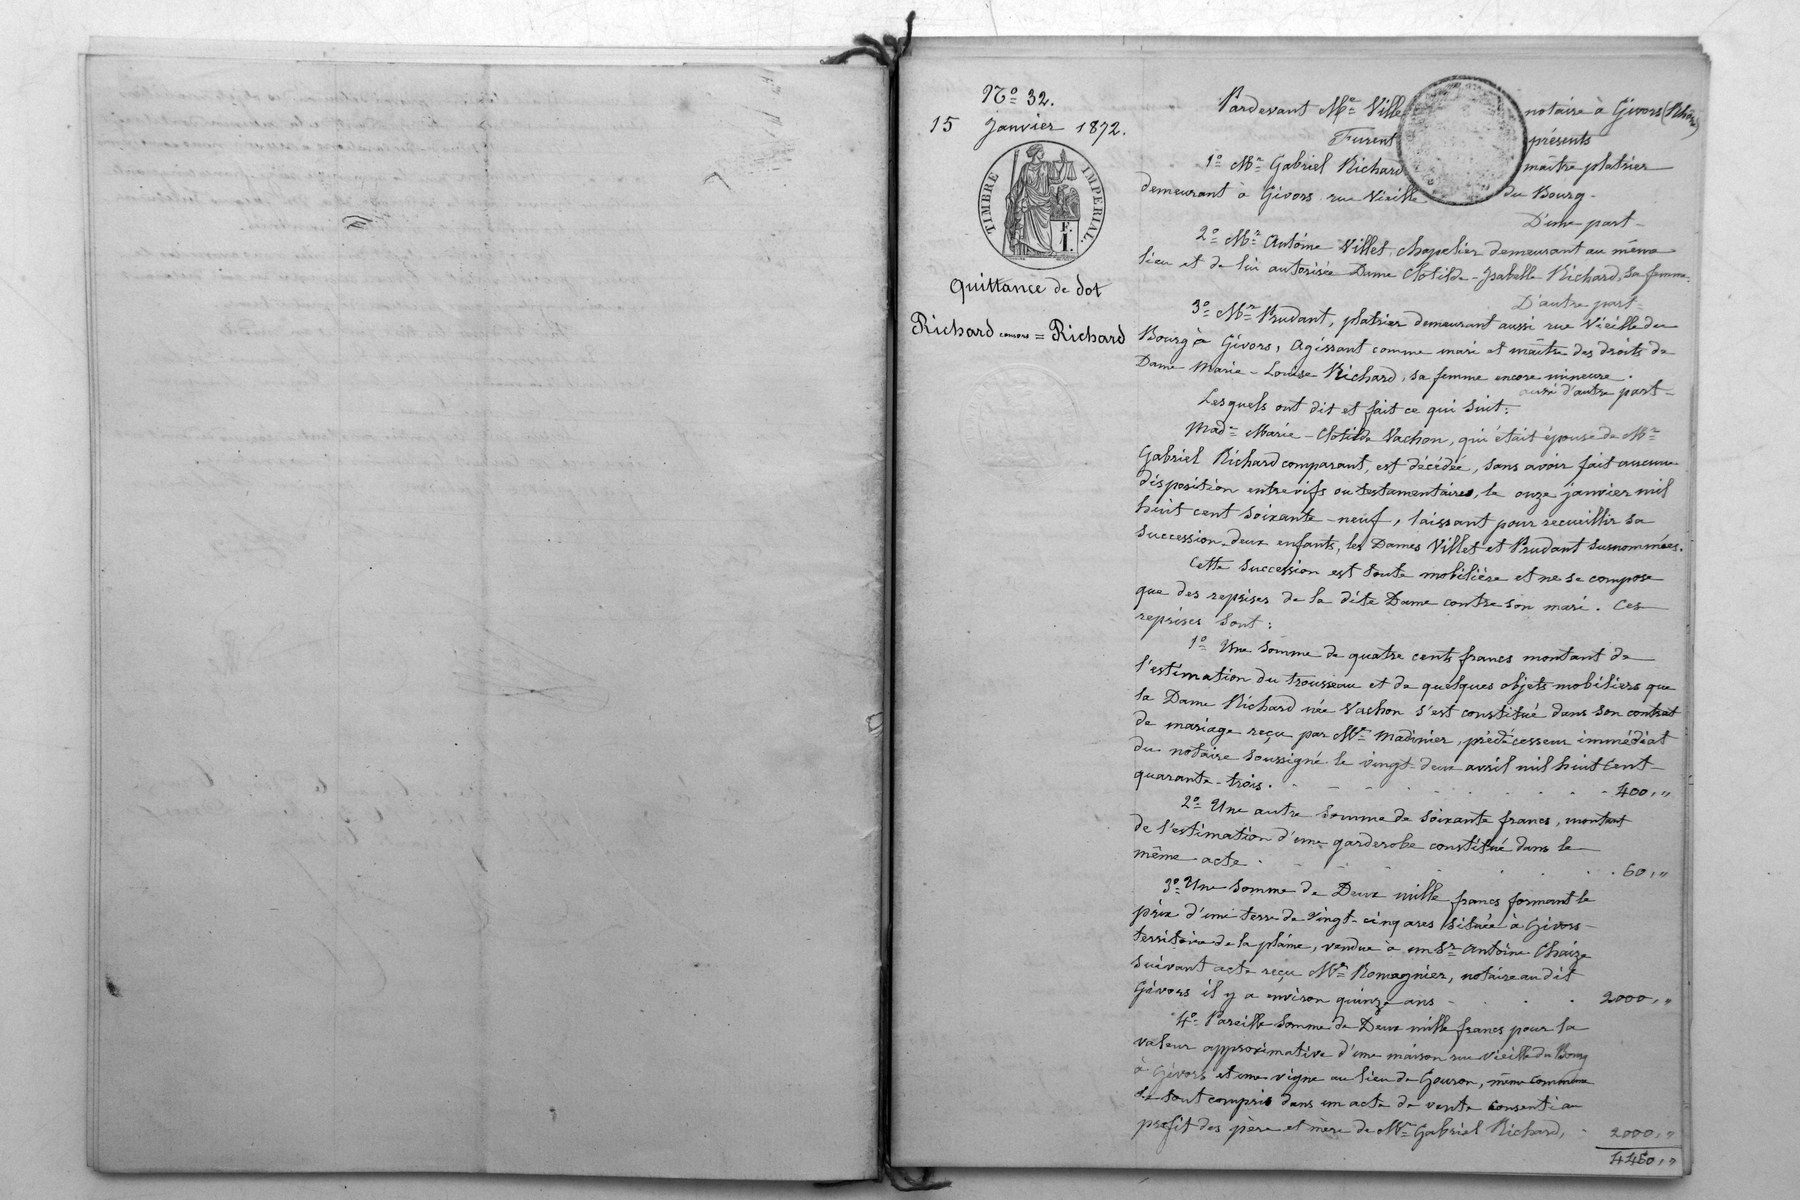 Nº 32.
15 Janvier 1872.
TIMBRE IMPERIAL.
F.
I.
Quittance de dot
Richard consors = Richard
Pardevant Me Ville notaire à Givors (Rhône)
Furent présents
1º Mr Gabriel Richard maître platrier
demeurant à Givors rue Vieille du Bourg.
D'une part
2º Mr Antoine Villet, chapelier demeurant au même
lieu et de lui autorisée Dame Clotilde-Isabelle Richard, sa femme.
D'autre part
3º Mr Prudant, platrier demeurant aussi rue Vieille du
Bourg à Givors, agissant comme mari et maître des droits de
Dame Marie-Louise Richard, sa femme encore mineure.
aussi d'autre part
Lesquels ont dit et fait ce qui suit:
Made Marie-Clotilde Vachon, qui était épouse de Mr
Gabriel Richard comparant, est décédée, sans avoir fait aucune
disposition entrevifs ou testamentaires, le onze janvier mil
huit cent soixante-neuf, laissant pour recueillir sa
succession deux enfants, les Dames Villet et Prudant susnommées.
Cette succession est toute mobilière et ne se compose
que des reprises de la dite Dame contre son mari. Ces
reprises sont:
1º Une somme de quatre cents francs montant de
l'estimation du trousseau et de quelques objets mobiliers que
la Dame Richard née Vachon s'est constitué dans son contrat
de mariage reçu par Me Madinier, prédécesseur immédiat
du notaire soussigné le vingt-deux avril mil huit cent
quarante-trois. 400,"
2º Une autre somme de soixante francs, montant
de l'estimation d'une garderobe constitué dans le
même acte. 60,"
3º Une somme de Deux mille francs formant le
prix d'une terre de vingt-cinq ares située à Givors
territoire de la plaine, vendue à un Sr Antoine Chaize
suivant acte reçu Me Romagnier, notaire au dit
Givors il y a environ quinze ans 2000,"
4º Pareille somme de Deux mille francs pour la
valeur approximative d'une maison rue Vieille du Bourg
à Givors et une vigne au lieu de Gouron, même commune
le tout compris dans un acte de vente consenti a
profit des père et mère de Mr Gabriel Richard, 2000,"
4460,"